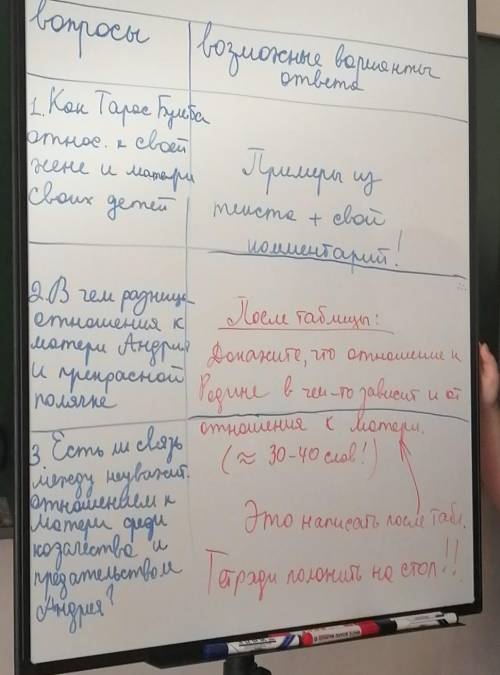 вопросы
возможные варианты
ответа
1. Как Тарас Бульба
относ. к своей
жене и матери
своих детей
Примеры из
текста + свой
комментарий!
2. В чем разница
отношения к
матери Андрия
и прекрасной
полячке
После таблицы:
Докажите, что отношение к
Родине в чем-то зависит и от
отношения к матери.
(≈ 30-40 слов!)
3. Есть ли связь
между неуважит.
отношением к
матери среди
козачества и
предательством
Андрия?
Это написать после табл.
Тетради положить на стол!!!